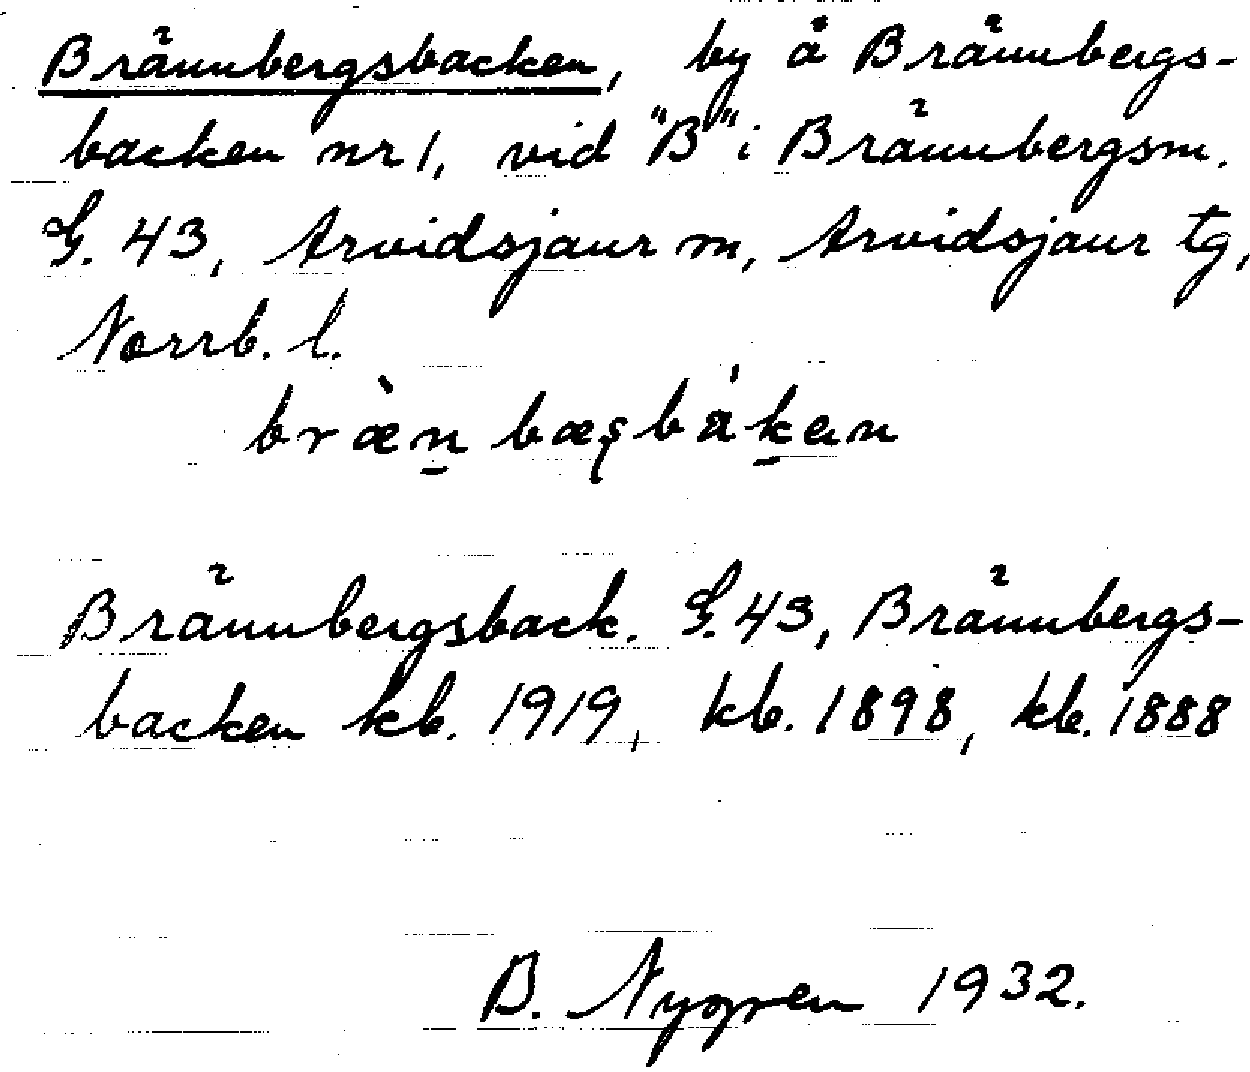 Brännbergsbacken, by å Brännbergs-
backen nr 1, vid "B" i Brännbergsm.
G. 43, Arvidsjaur m, Arvidsjaur tg,
Norrb. l.
bræ̀n̠bæşbák̠en
Brännbergsback. G. 43, Brännbergs-
backen kb. 1919, kb. 1898, kb. 1888
B. Nygren 1932.